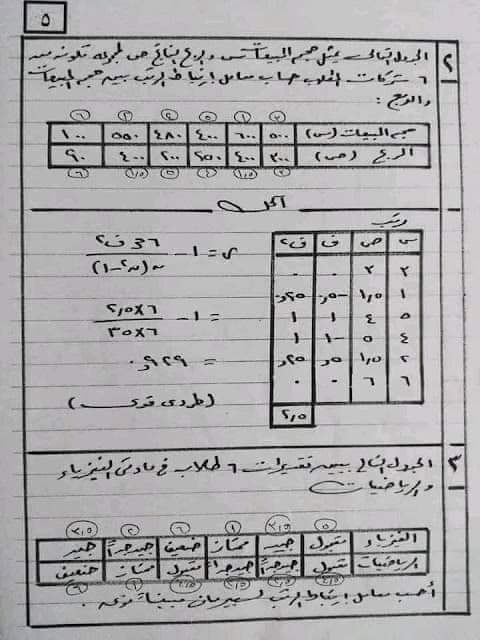 ٥
٢ الجدول التالى يمثل حجم المبيعات س والربح الناتج ص لمجموعة تكونت من
٦ شركات المطلوب حساب معامل ارتباط الرتب بين حجم المبيعات
والربح :
٣ ١ ٥ ٤ ٢ ٦
حجم المبيعات (س) ٥٠٠ ٦٠٠ ٤٠٠ ٤٨٠ ٥٥٠ ١٠٠
الربح (ص) ٣٠٠ ٤٠٠ ٢٥٠ ٢٠٠ ٤٠٠ ٩٠
٣ ١,٥ ٤ ٥ ١,٥ ٦
الحل
رتب
س ص ف ف٢
٣ ٣ ٠ ٠
١ ١,٥ -٥,٠ ٢٥,٠
٥ ٤ ١ ١
٤ ٥ -١ ١
٢ ١,٥ ٥,٠ ٢٥,٠
٦ ٦ ٠ ٠
٢,٥
ر = ١ - ٦ مجـ ف٢ / ن(ن٢-١)
= ١ - ٦×٢,٥ / ٦×٣٥
= ٩٢٩,٠
(طردى قوى)
٣ الجدول التالى يبين تقديرات ٦ طلاب فى مادتى الفيزياء
والرياضيات
٥ ٣,٥ ١ ٦ ٢ ٣,٥
الفيزياء مقبول جيد ممتاز ضعيف جيد جداً جيد
الرياضيات مقبول جيد جداً جيد جداً مقبول ممتاز ضعيف
٤,٥ ٢,٥ ٢,٥ ٤,٥ ١ ٦
أحسب معامل ارتباط الرتب لسبيرمان مبيناً نوعه .